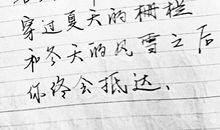 穿过夏天的栅栏
和冬天的风雪之后
你终会抵达、